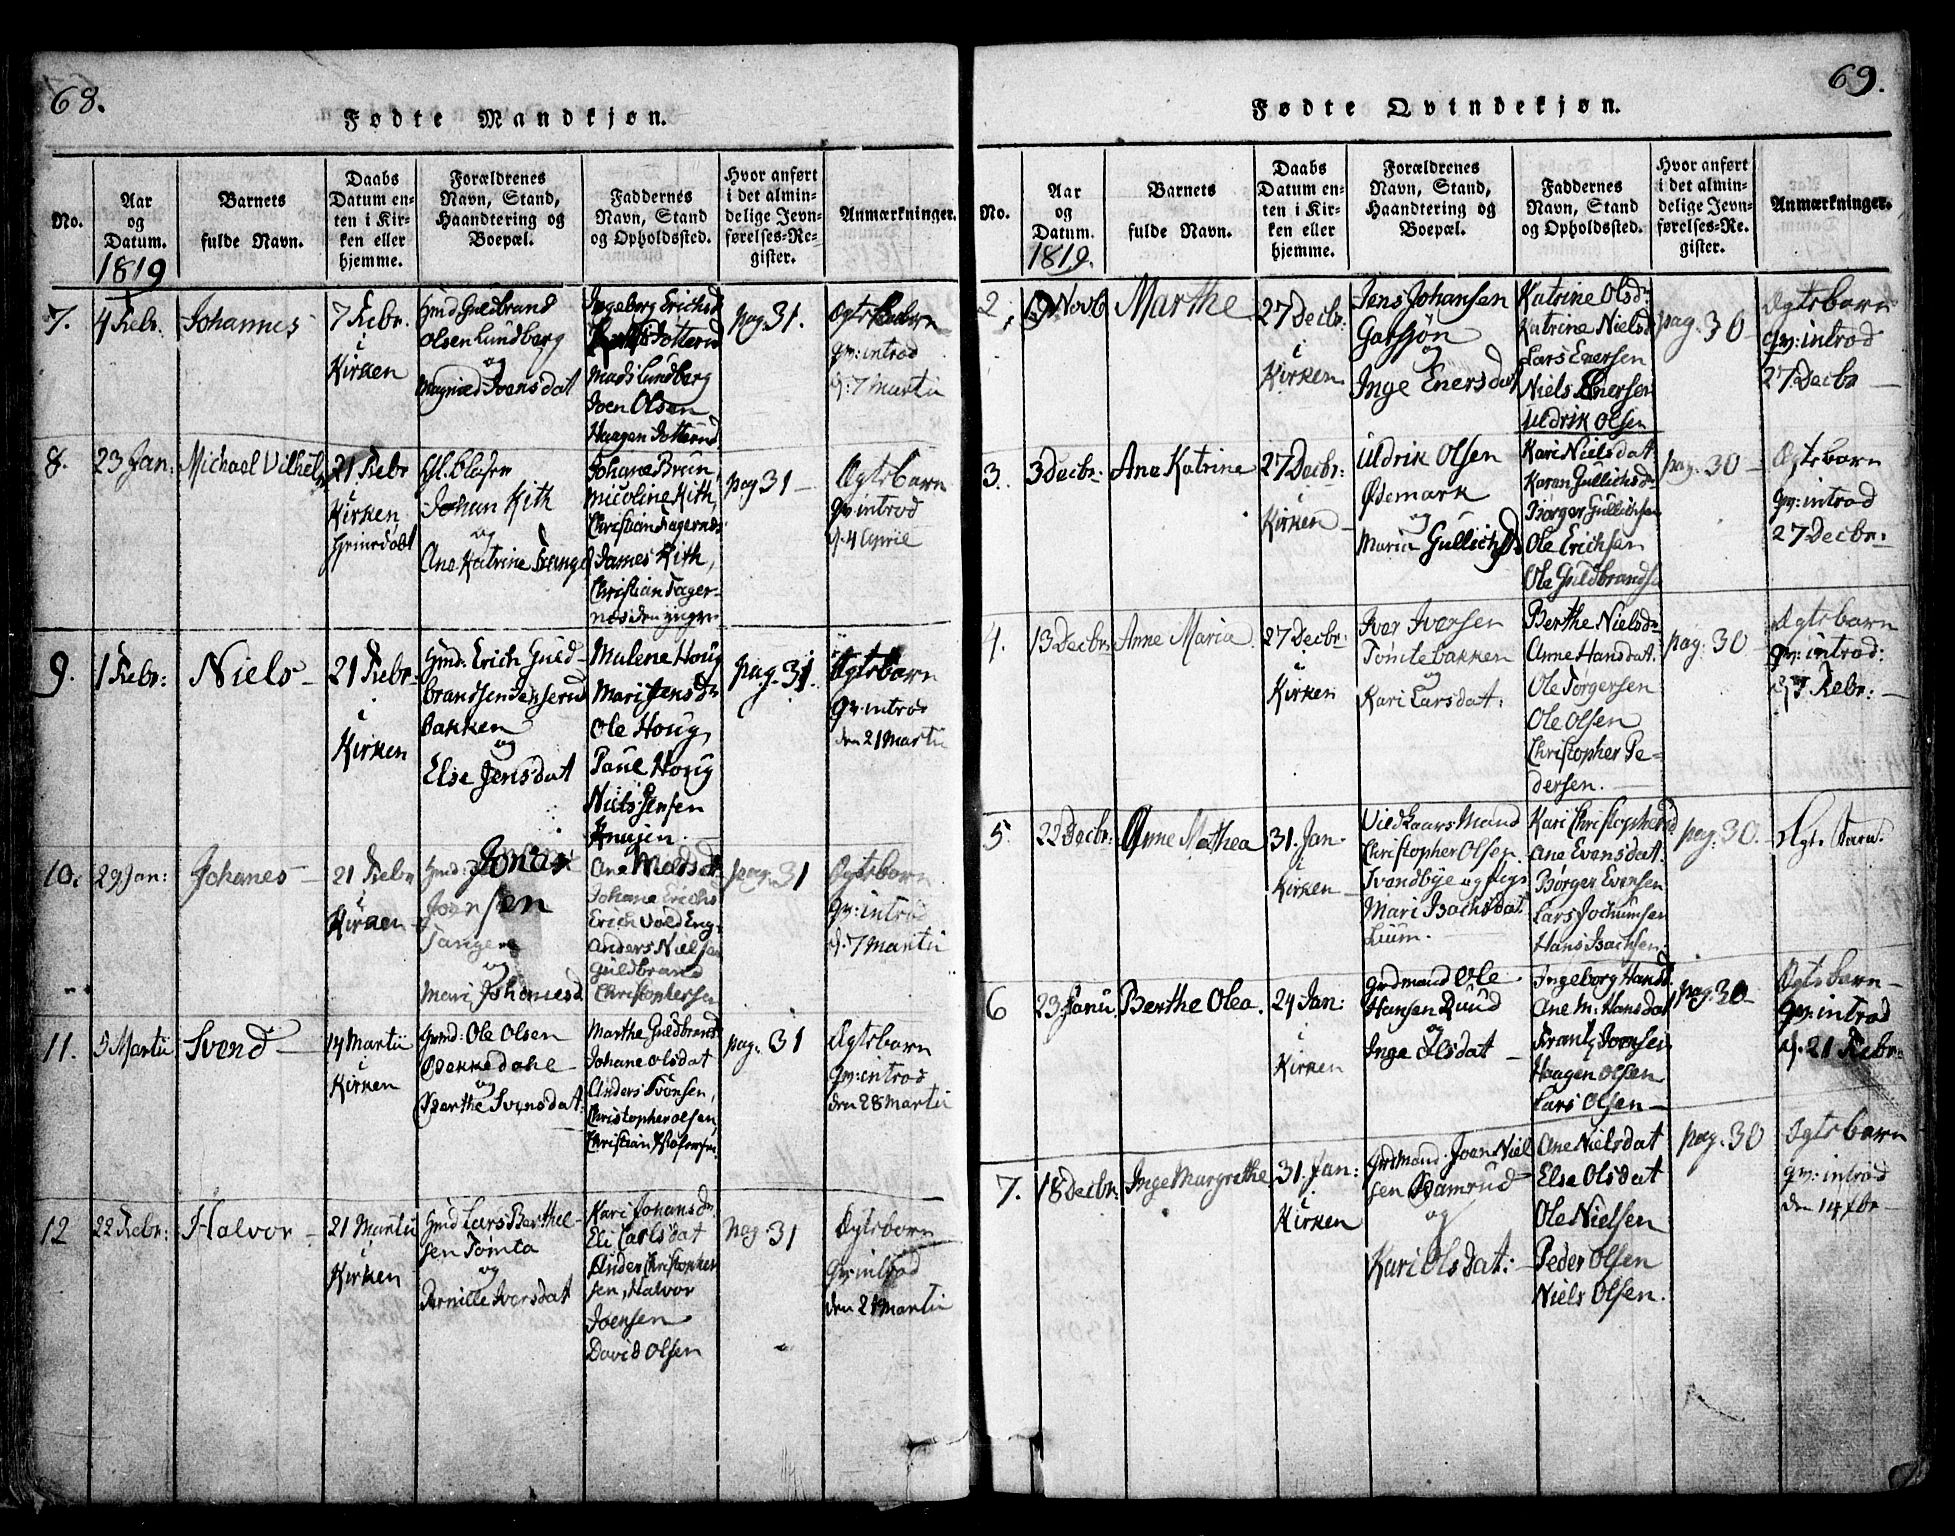 68.
Fødte Mandkjøn.
No.
Aar
og
Datum.
1819
Barnets
fulde Navn.
Daabs
Datum en-
ten i Kir-
ken eller
hjemme.
Forældrenes
Navn, Stand,
Haandtering og
Boepæl.
Faddernes
Navn, Stand
og Opholdssted.
Hvor anført
i det almin-
delige Jevn-
førelses-Re-
gister.
Anmærkninger.
7.
4 Febr.
Johannes
7 Febr.
i
Kirken
Gmd Guldbrand
Olsen Lundberg
og
Ivensdat
Ingeborg Erichsd
Totterud
Mads Lundberg
Joen Olsen
Haagen Totterud
pag. 31.
Ægtebarn
qv: introd
d. 7 Martii
8.
23 Jan:
Michael Vilhelm
21 Febr
i
Kirken
Johan Kith
og
Ane Katrine
Johane Brun,
Nicoline Kith,
Christian Fagernes
James Kith,
Christian Fager-
næs den yngre
pag 31 -
Ægtebarn
qv: introd
d. 4 April
9.
1 Febr:
Niels -
21 Febr:
i
Kirken
Gmd. Erich Guld-
brandsen Jenserud
Bakken
og
Else Jensdat
Malene Houg
Mari Jensd:
Ole Houg,
Paul Houg
Niels Jensen
pag. 31.
Ægtebarn
qv: introd
den 21 Martii
10.
29 Jan:
Johanes -
21 Febr
i
Kirken -
Gmd: Jonas
Joensen
Tangen
og
Mari Johanesd
Ane Madsdt
Johane Erichs
Erich Vold Eng.
Anders Nielsen
Guldbrand
Christophersen
pag. 31
Ægtebarn
qv: introd
d. 7 Martii
11.
5 Martii
Svend -
14 Martii
i
Kirken
Gmd: Ole Olsen
Bekkedahl -
og
Berthe Svensdat:
Marthe Guldbrands
Johane Olsdat
Anders Svensen,
Christopher Olsen,
Christian
pag. 31
Ægtebarn
qv: introd
den 28 Martii
12
22 Febr:
Halvor -
21 Martii
i
Kirken
Gmd Lars Berthel-
sen Tomta
og
Pernille Iversdat
Kari Johansd:
Eli Carlsdat
Ander Christopher
sen, Halvor
Joensen
David Olsen
pag. 31
Ægtebarn
qv: introd
den 21 Martii
69.
Fødte Qvindekjøn.
No.
Aar
og
Datum.
1819.
Barnets
fulde Navn.
Daabs
Datum en-
ten i Kir-
ken eller
hjemme.
Forældrenes
Navn, Stand,
Haandtering og
Boepæl.
Faddernes
Navn, Stand
og Opholdssted.
Hvor anført
i det almin-
delige Jevn-
førelses-Re-
gister.
Anmærkninger.
2.
Novb
Marthe
27 Decbr.
i
Kirken
Jens Johansen
Gassjøn
og
Inge Enersdat
Katrine Olsd:
Katrine Nielsd
Lars Enersen
Niels Enersen
Uldrik Olsen
pag. 30 -
Ægtebarn
qv: introd
27 Decbr -
3.
3 Decbr:
Ane Katrine
27 Decbr:
i
Kirken -
Uldrik Olsen
Ødemark
og
Maria Gullichsd
Kari Nielsdat
Karen Gullichsd:
Børger Gullichsen
Ole Erichsen
Ole Guldbrandse
pag: 30 -
Ægtebarn
qv: introd
27 Decbr:
4.
13 Decbr:
Anne Maria
27 Decbr:
i
Kirken
Iver Iversen
Tomtebakken
og
Kari Larsdat:
Berthe Nielsd:
Anne Hansdat:
Ole Torgersen
Ole Olsen
Christopher Pe-
dersen. -
pag: 30 -
Ægtebarn
qv: introd:
Febr: -
5.
22 Decbr:
Anne Mathea
31. Jan-
i
Kirken -
Christopher Olsen
Svendbye og Pige
Mari Bachsdat
Lium.
Kari Christophersd
Ane Evensdat.
Børger Evensen
Lars Jochumsen
Hans Bachsen.
pag: 30. -
Ægte Barn.
6
23 Janu
Berthe Olea.
24 Jan:
i
Kirken
Grdmand Ole
Hansen Ruud
og
Inge Olsdat -
Ingeborg Hansd.
Ane M: Hansdat
Frantz Joensen
Haagen Olsen
Lars Olsen -
pag. 30 -
Ægtebarn -
qv: introd
d. 21 Febr:
7.
18 Decbr:
Inge Margrethe
31. Jan:
i
Kirken
Grdmand. Joen Niel
sen Ramrud
og
Kari Olsdat: -
Ane Nielsdat
Else Olsdat
Ole Nielsen
Peder Olsen
Niels Olsen.
pag. 30
Ægtebarn
qv: introd
den 14 Fbr -